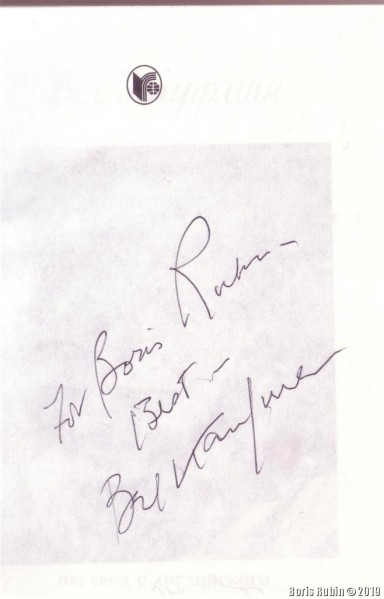 For Boris Rubin –
Best –
Bel Kaufman
Boris Rubin © 2019